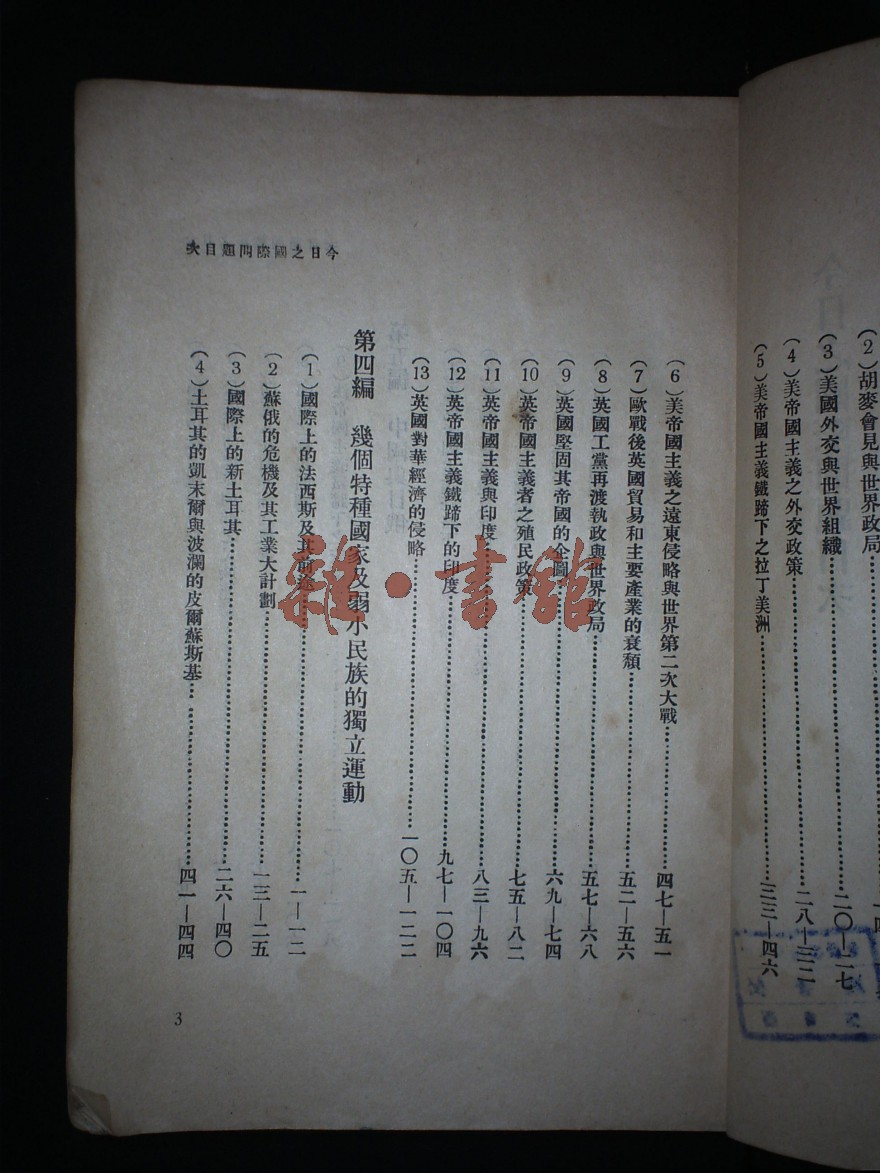 (2)胡麥會見與世界政局
(3)美國外交與世界組織 二〇—二七
(4)美帝國主義之外交政策 二八—三二
(5)美帝國主義鐵蹄下之拉丁美洲 三三—四六
今日之國際問題目次
(6)美帝國主義之遠東侵略與世界第二次大戰 四七—五一
(7)歐戰後英國貿易和主要產業的衰頹 五二—五六
(8)英國工黨再渡執政與世界政局 五七—六八
(9)英國堅固其帝國的企圖 六九—七四
(10)英帝國主義者之殖民政策 七五—八二
(11)英帝國主義與印度 八三—九六
(12)英帝國主義鐵蹄下的印度 九七—一〇四
(13)英國對華經濟的侵略 一〇五—一二二
第四編 幾個特種國家及弱小民族的獨立運動
(1)國際上的法西斯及其前途 一—一二
(2)蘇俄的危機及其工業大計劃 一三—二五
(3)國際上的新土耳其 二六—四〇
(4)土耳其的凱末爾與波瀾的皮爾蘇斯基 四一—四四
3
雜·書館